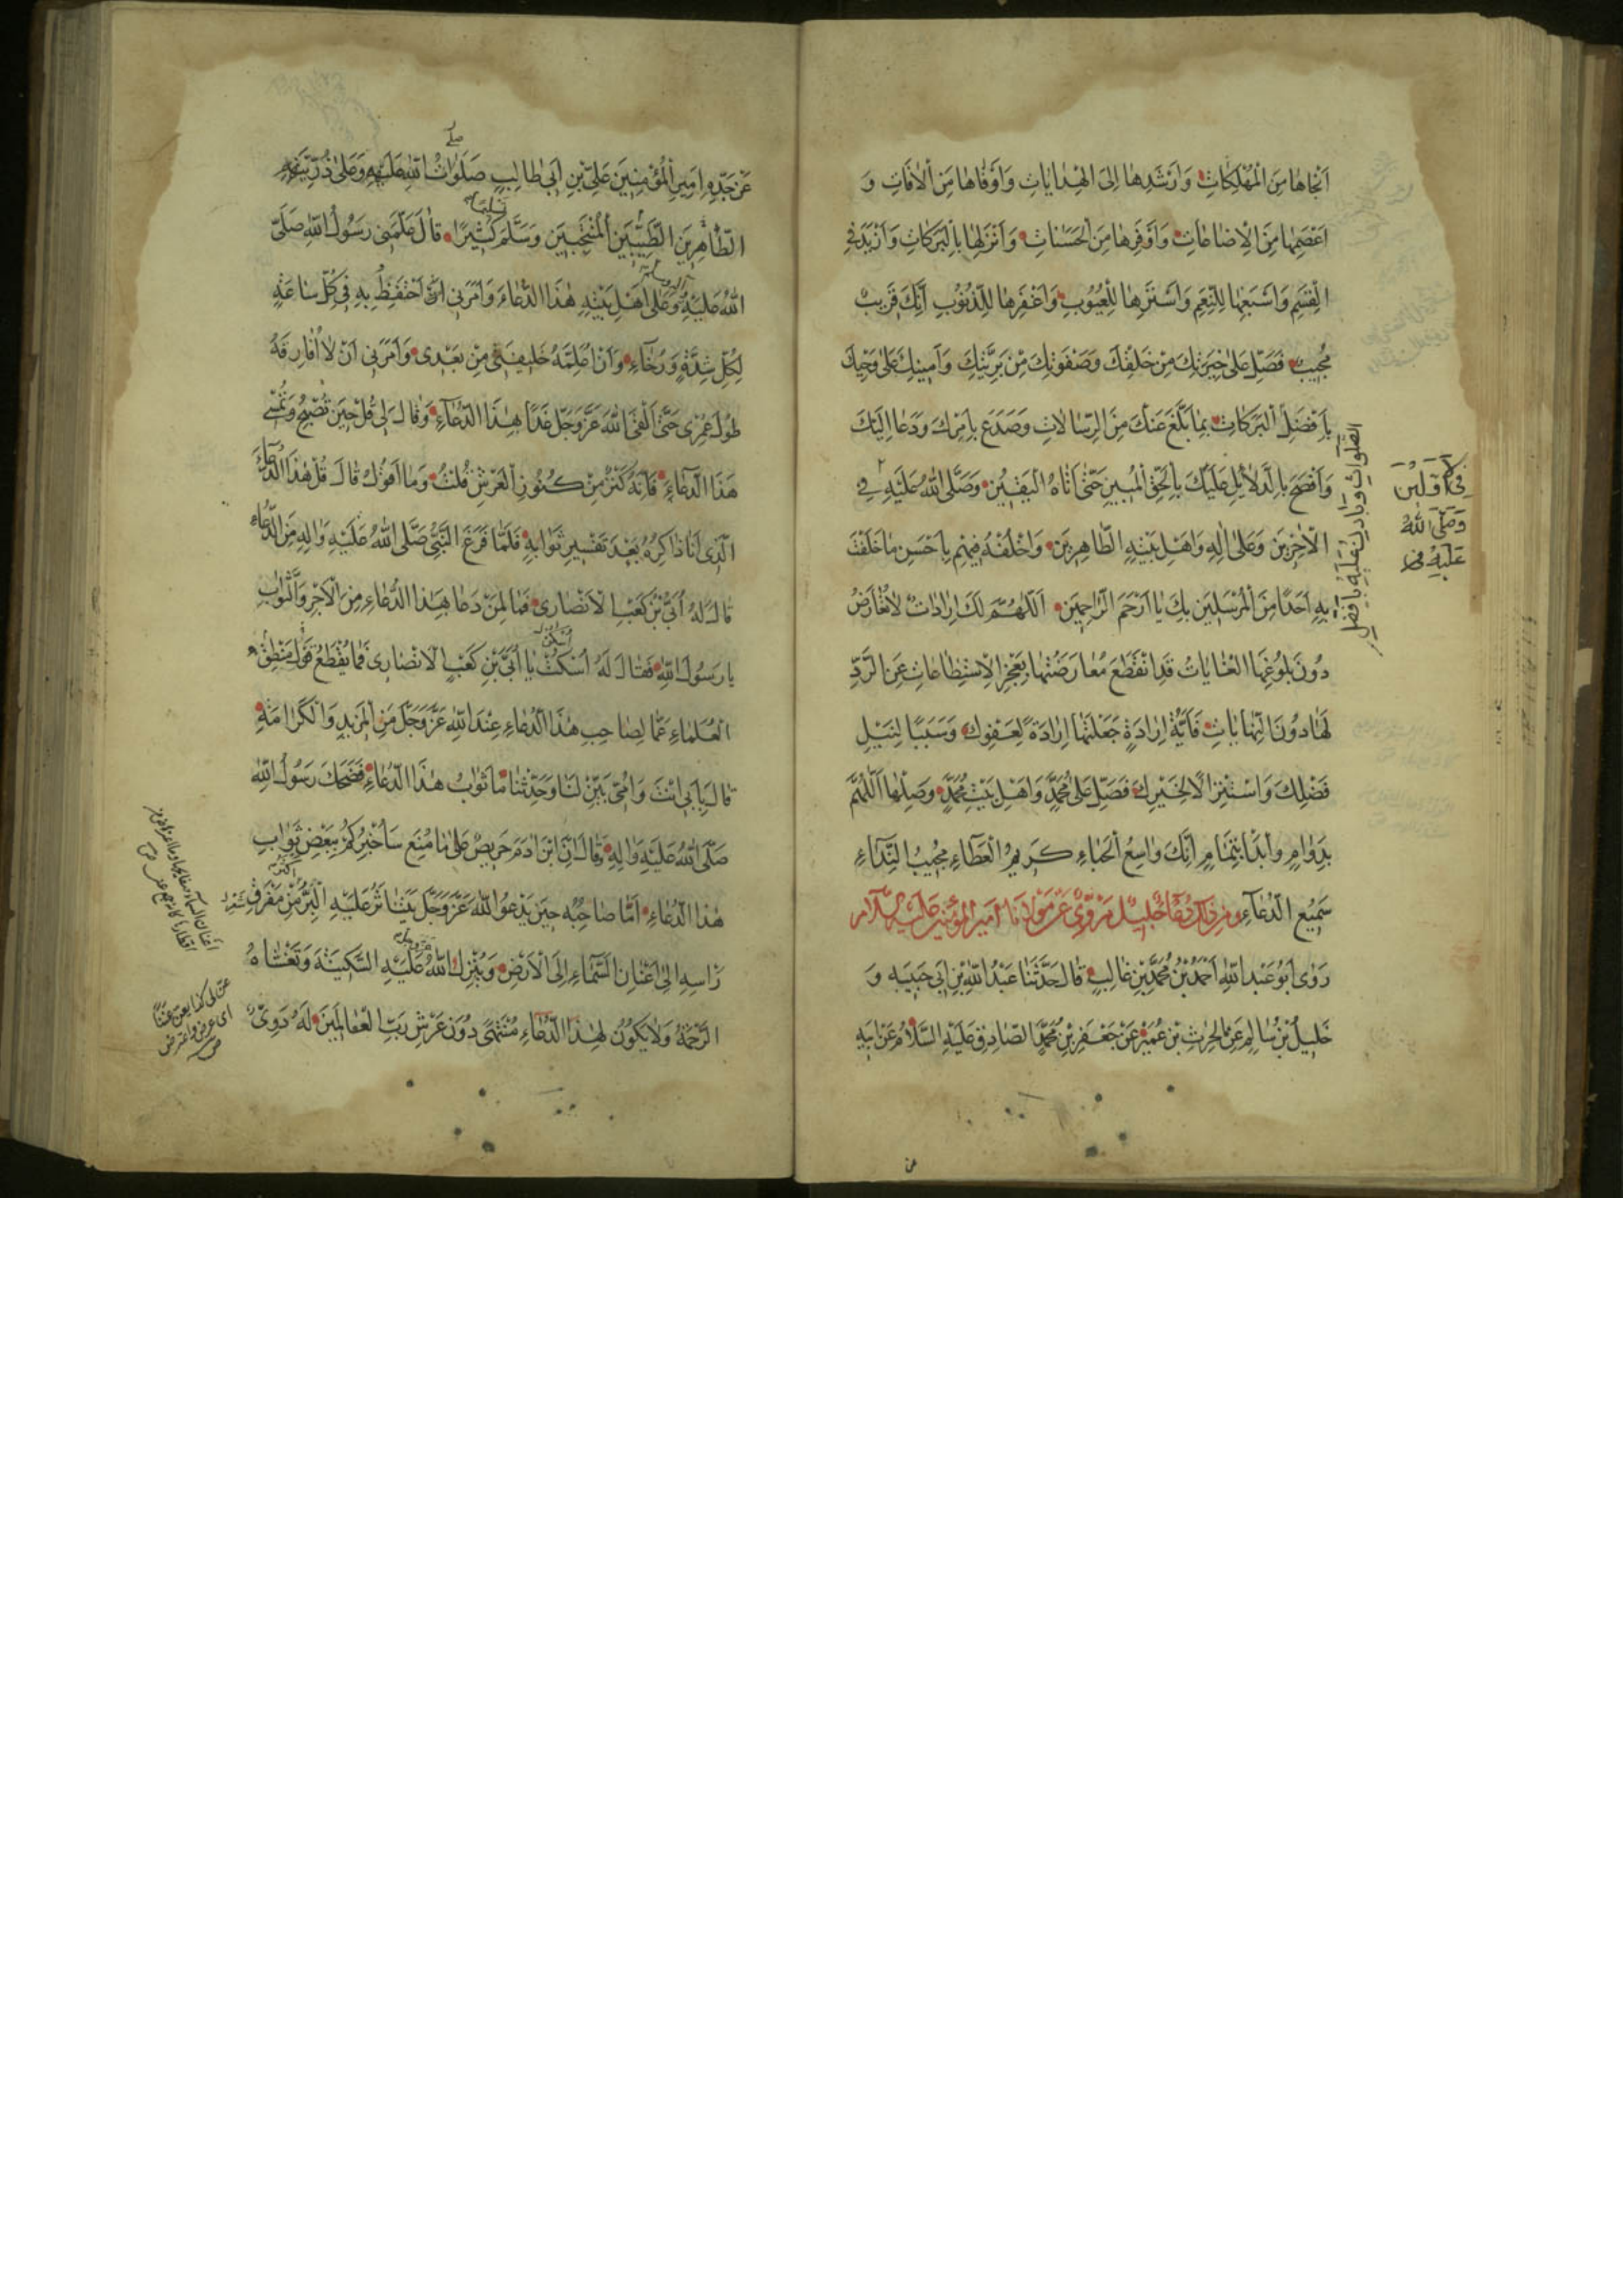 اَنْجَاهَا مِنَ الْمُهْلِكَاتِ وَاَرْشَدِهَا اِلَى الْهِدَايَاتِ وَاَوْقَاهَا مِنَ الْاٰفَاتِ وَ
اَعْصَمِهَا مِنَ الْاِضَاعَاتِ وَاَوْفَرِهَا مِنَ الْحَسَنَاتِ وَاَنْزَلِهَا بِالْبَرَكَاتِ وَاَزْيَدَ فِي
الْقِسَمِ وَاَسْبَغِهَا لِلنِّعَمِ وَاَسْتَرِهَا لِلْعُيُوبِ وَاَغْفَرِهَا لِلذُّنُوبِ اِنَّكَ قَرِيبٌ
مُجِيبٌ فَصَلِّ عَلٰى خِيَرَتِكَ مِنْ خَلْقِكَ وَصَفْوَتِكَ مِنْ بَرِيَّتِكَ وَاَمِينِكَ عَلٰى وَحْيِكَ
بِاَفْضَلِ الْبَرَكَاتِ بِمَا بَلَّغَ عَنْكَ مِنَ الرِّسَالَاتِ وَصَدَعَ بِاَمْرِكَ وَدَعَا اِلَيْكَ
وَاَفْصَحَ بِالدَّلَائِلِ عَلَيْكَ بِالْحَقِّ الْمُبِينِ حَتّٰى اَتَاهُ الْيَقِينُ وَصَلَّى اللّٰهُ عَلَيْهِ فِي
الْاٰخِرِينَ وَعَلٰى اٰلِهِ وَاَهْلِ بَيْتِهِ الطَّاهِرِينَ وَاخْلُفْهُ فِيهِمْ بِاَحْسَنِ مَا خَلَفْتَ
بِهِ اَحَدًا مِنَ الْمُرْسَلِينَ بِكَ يَا اَرْحَمَ الرَّاحِمِينَ اَللّٰهُمَّ لَكَ اِرَادَاتٌ لَا تُعَارَضُ
دُونَ بُلُوغِهَا الْغَايَاتُ قَدِ انْقَطَعَ مُعَارَضَتُهَا بِعَجْزِ الْاِسْتِطَاعَاتِ عَنِ الرَّدِّ
لَهَا دُونَ النِّهَايَاتِ فَاَيَّةُ اِرَادَةٍ جَعَلْتَهَا اِرَادَةً لِعَفْوِكَ وَسَبَبًا لِنَيْلِ
فَضْلِكَ وَاسْتِنْزَالًا لِخَيْرِكَ فَصَلِّ عَلٰى مُحَمَّدٍ وَاَهْلِ بَيْتِ مُحَمَّدٍ وَصِلْهَا اَللّٰهُمَّ
بِدَوَامٍ وَابْدَأْ بِتَمَامٍ اِنَّكَ وَاسِعُ الْحِبَاءِ كَرِيمُ الْعَطَاءِ مُجِيبُ النِّدَاءِ
سَمِيعُ الدُّعَاءِ ومن ذلك دعاء جليل مروي عن مولانا امير المؤمنين عليه السلام
رَوٰى اَبُو عَبْدِ اللّٰهِ اَحْمَدُ بْنُ مُحَمَّدِ بْنِ غَالِبٍ قَالَ حَدَّثَنَا عَبْدُ اللّٰهِ بْنِ اَبِي حَبِيبَه وَ
خَلِيلُ بْنُ سَالِمٍ عَنِ الْحٰرِثِ بْنِ عُمَيْرٍ عَنْ جَعْفَرِ بْنِ مُحَمَّدٍ الصَّادِقِ عَلَيْهِ السَّلَامُ عَنْ اَبِيهِ
فِي الْاَوَّلِينَ
وَصَلَّى اللّٰهُ
عَلَيْهِ فِي
عَنْ جَدِّهِ اَمِيرِ الْمُؤْمِنِينَ عَلِيِّ بْنِ اَبِي طَالِبٍ صَلَوَاتُ اللّٰهِ عَلَيْهِمْ وَعَلٰى ذُرِّيَّتِهِمُ
الطَّاهِرِينَ الطَّيِّبِينَ الْمُنْتَجَبِينَ وَسَلَّمَ كَثِيرًا قَالَ عَلَّمَنِي رَسُولُ اللّٰهِ صَلَّى
اللّٰهُ عَلَيْهِ وَعَلٰى اَهْلِ بَيْتِهِ هٰذَا الدُّعَاءَ وَاَمَرَنِي اَنْ اَحْتَفِظَ بِهِ فِي كُلِّ سَاعَةٍ
لِكُلِّ شِدَّةٍ وَرَخَاءٍ وَاَنْ اُعَلِّمَهُ خَلِيفَتِي مِنْ بَعْدِي وَاَمَرَنِي اَنْ لَا اُفَارِقَهُ
طُولَ عُمُرِي حَتّٰى اَلْقَى اللّٰهَ عَزَّ وَجَلَّ غَدًا بِهٰذَا الدُّعَاءِ وَقَالَ لِي قُلْ حِينَ تُصْبِحُ وَتُمْسِي
هٰذَا الدُّعَاءَ فَاِنَّهُ كَنْزٌ مِنْ كُنُوزِ الْعَرْشِ قُلْتُ وَمَا اَقُولُ قَالَ قُلْ هٰذَا الدُّعَاءَ
الَّذِي اَنَا ذَاكِرُهُ بَعْدَ تَفْسِيرِ ثَوَابِهِ فَلَمَّا فَرَغَ النَّبِيُّ صَلَّى اللّٰهُ عَلَيْهِ وَاٰلِهِ مِنَ الدُّعَاءِ
قَالَ لَهُ اُبَيُّ بْنُ كَعْبٍ الْاَنْصَارِي فَمَا لِمَنْ دَعَا بِهٰذَا الدُّعَاءِ مِنَ الْاَجْرِ وَالثَّوَابِ
يَا رَسُولَ اللّٰهِ فَقَالَ لَهُ اُسْكُتْ يَا اُبَيَّ بْنِ كَعْبٍ الْاَنْصَارِي فَمَا يُقْطَعُ قَوْلُ مَنْطِقِ
الْعُلَمَاءِ عَمَّا لِصَاحِبِ هٰذَا الدُّعَاءِ عِنْدَ اللّٰهِ عَزَّ وَجَلَّ مِنَ الْمَزِيدِ وَالْكَرَامَةِ
قَالَ بِاَبِي اَنْتَ وَاُمِّي بَيِّنْ لَنَا وَحَدِّثْنَا مَا ثَوَابُ هٰذَا الدُّعَاءِ فَضَحِكَ رَسُولُ اللّٰهِ
صَلَّى اللّٰهُ عَلَيْهِ وَاٰلِهِ وَقَالَ اِنَّ ابْنَ اٰدَمَ حَرِيصٌ عَلٰى مَا مُنِعَ سَاُخْبِرُكُمْ بِبَعْضِ ثَوَابِ
هٰذَا الدُّعَاءِ اَمَّا صَاحِبُه حِينَ يَدْعُو اللّٰهَ عَزَّ وَجَلَّ يَتَنَاثَرُ عَلَيْهِ الْبِرُّ مِنْ مَفْرَقِ
رَاْسِهِ اِلٰى اَعْنَانِ السَّمَاءِ اِلَى الْاَرْضِ وَيُنْزِلُ اللّٰهُ عَلَيْهِ السَّكِينَةَ وَتَغْشَاهُ
الرَّحْمَةُ وَلَا يَكُونُ لِهٰذَا الدُّعَاءِ مُنْتَهًى دُونَ عَرْشِ رَبِّ الْعَالَمِينَ لَهُ دَوِيٌّ